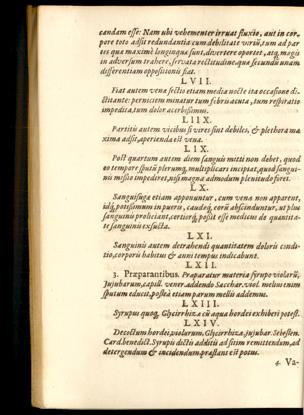 candam esse: Nam ubi vehementer irruat fluxio, aut in cor-
pore toto adsit redundantia cum debilitate viriũ, tum ad par
tes quæ maximè longinqua sunt, divertere oportet, atq; magis
in adversum trahere, servata rectitudine. quæ secundu unam
differentiam oppositionis fiat.
LVII.
Fiat autem vena sectio etiam media nocte ita occasione di-
ctitante: perniciem minatur tum febris acuta, tum respiratio
impedita, tum dolor acerbissimus.
LIIX.
Partitis autem vicibus si vires sint debiles, & plethora ma
xima adsit, aperienda est vena.
LIX.
Post quartum autem diem sanguis mitti non debet, quod
eo tempore sputũ plerumq; multiplicari incipiat, quod sangui-
nis missio impediret, nisi magna admodum plenitudo siret.
LX.
Sanguisugæ etiam apponuntur, cum vena non apparent,
idq; potissimum in pueris, caudæq; earũ abscinduntur, ut plus
sanguinis proliciant, certiorq; possit esse medicus de quantita-
te sanguinis exsucta.
LXI.
Sanguinis autem detrahendi quantitatem doloris condi-
tio, corporis habitus & anni tempus indicabunt.
LXII.
3. Præparantibus. Præparatur materia syrupo violarũ,
Jujubarum, capill. vener. addendo Sacchar. viol. melius enim
sputum educit, posteà etiam parum mellis addemus.
LXIII.
Syrupus quoq; Glycirrhiza cũ aqua hordei exhiberi potest.
LXIV.
Decoctum hordei, violarum. Glycirrhiza, jujubar. Sebesten.
Card. benedict. Syrupis dictis additis ad sitim remittendum, ad
detergendum & incidendum præstans est potus.
4. Va-